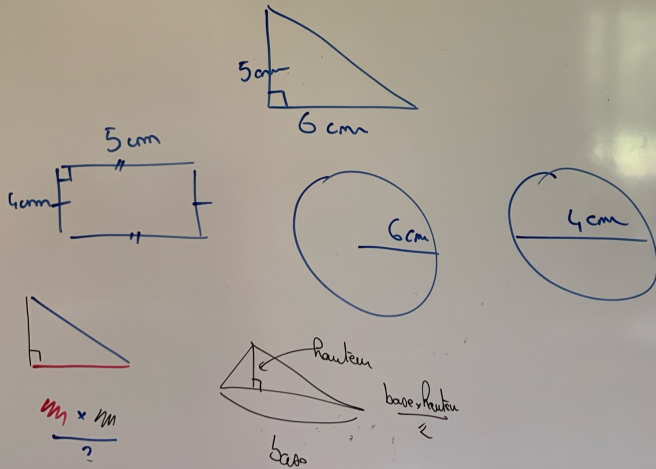 5cm
6 cm
5 cm
4cm
6cm
4cm
hauteur
base × hauteur
2
×
2
base